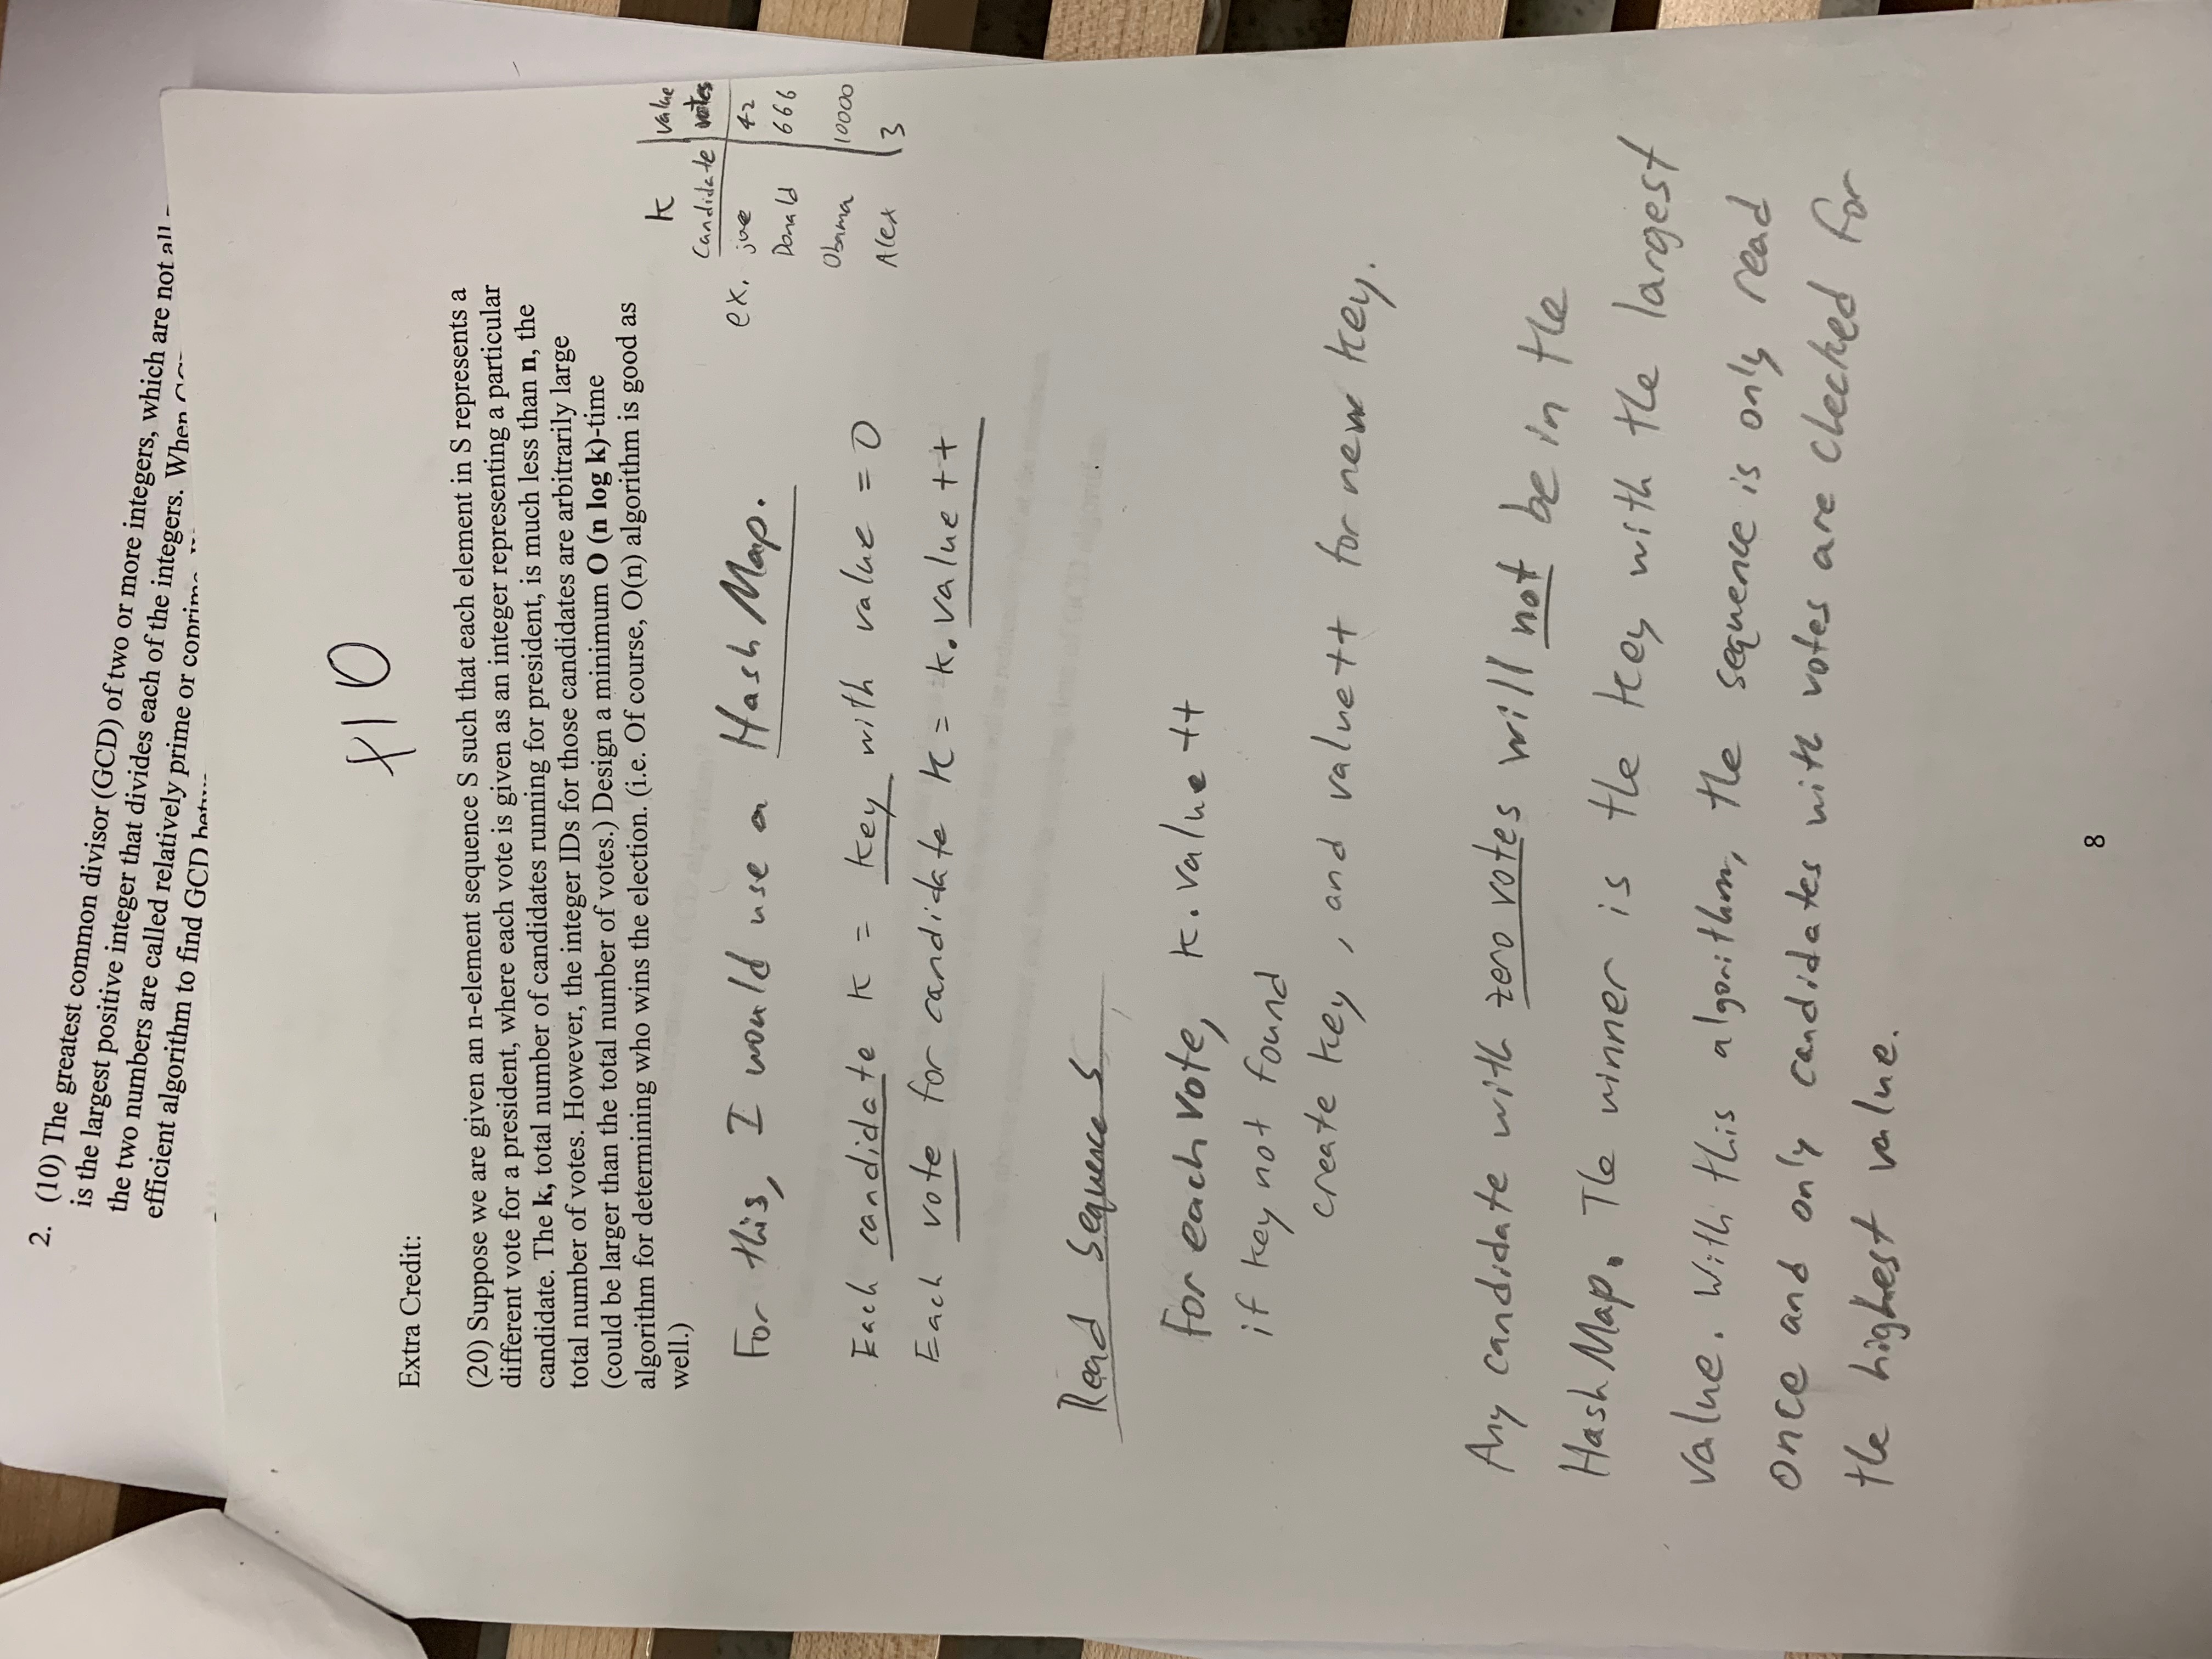 2. (10) The greatest common divisor (GCD) of two or more integers, which are not all
is the largest positive integer that divides each of the integers. When
the two numbers are called relatively prime or coprime
efficient algorithm to find GCD
+10
Extra Credit:
(20) Suppose we are given an n-element sequence S such that each element in S represents a
different vote for a president, where each vote is given as an integer representing a particular
candidate. The k, total number of candidates running for president, is much less than n, the
total number of votes. However, the integer IDs for those candidates are arbitrarily large
(could be larger than the total number of votes.) Design a minimum O (n log k)-time
algorithm for determining who wins the election. (i.e. Of course, O(n) algorithm is good as
well.)
K value
Candidate votes
ex. joe 42
Donald 666
Obama 10000
Alex 3
For this, I would use a Hash Map.
Each candidate K = key with value = 0
Each vote for candidate K = k.value++
Read Sequence S
For each vote, k.value++
if key not found
create key, and value++ for new key.
Any candidate with zero votes will not be in the
Hash Map. The winner is the key with the largest
value. With this algorithm, the sequence is only read
once and only candidates with votes are checked for
the highest value.
8